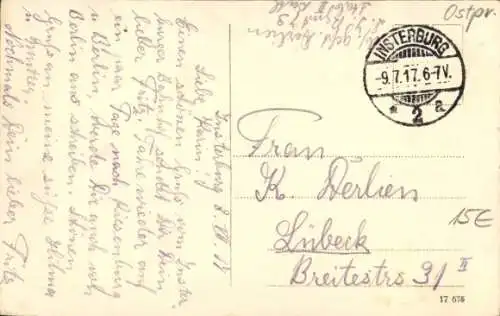 Ostpr.
INSTERBURG
-9.7.17.6-7V.
* 2 a
Insterburg 8. VII. 17
Liebe Karin!
Einen schönen Gruß vom Inster-
burger Bahnhof schickt Dir Dein
lieber Fritz. Fahre wieder auf
ein paar Tage nach Riesenburg
u Berlin, werde Dir auch von
Berlin aus schreiben. Schönen
Gruß an meine süße Hilma
u
Nochmals Dein lieber Fritz
Frau
K. Derlien
Lübeck
Breitestrs 31 II
15€
17 676